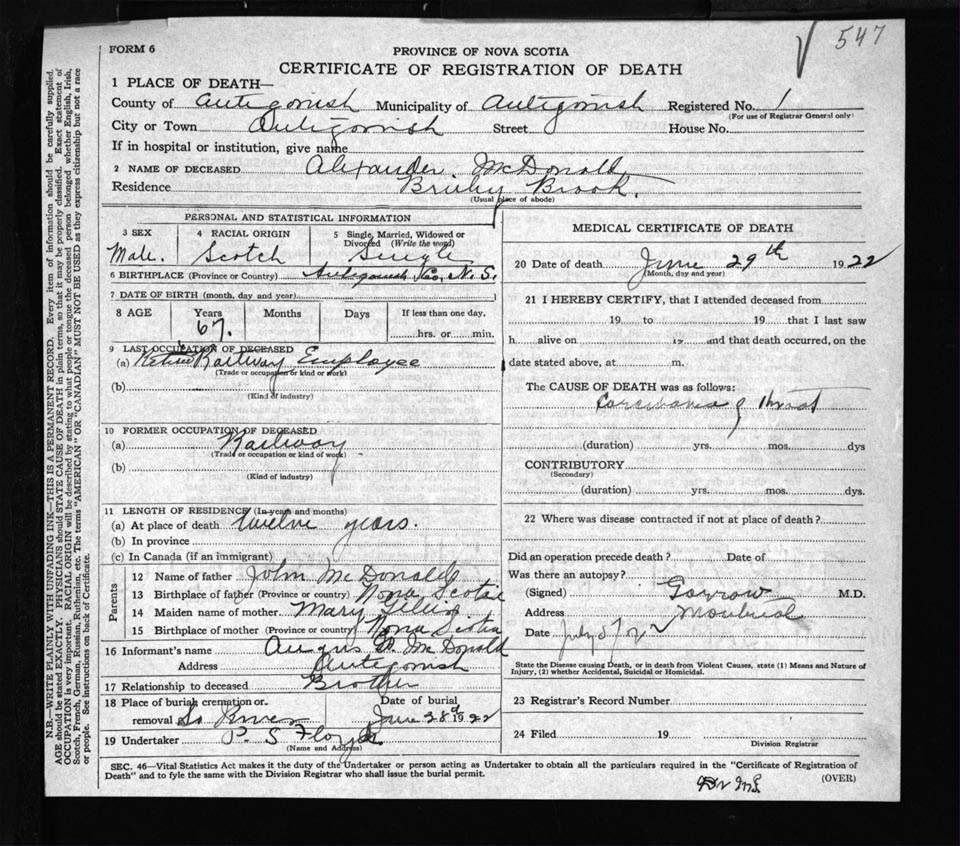 547
FORM 6
PROVINCE OF NOVA SCOTIA
CERTIFICATE OF REGISTRATION OF DEATH
1 PLACE OF DEATH—
County of Antigonish Municipality of Antigonish Registered No. 1
(For use of Registrar General only)
City or Town Antigonish Street House No.
If in hospital or institution, give name
2 NAME OF DECEASED Alexander McDonald
Residence Briley Brook.
(Usual place of abode)
PERSONAL AND STATISTICAL INFORMATION
3 SEX 4 RACIAL ORIGIN 5 Single, Married, Widowed or Divorced (Write the word)
Male. Scotch Single
6 BIRTHPLACE (Province or Country) Antigonish Co. N. S.
7 DATE OF BIRTH (month, day and year)
8 AGE Years Months Days If less than one day,
67. hrs. or min.
9 LAST OCCUPATION OF DECEASED
(a) Retired Railway Employee
(Trade or occupation or kind of work)
(b)
(Kind of industry)
10 FORMER OCCUPATION OF DECEASED
(a) Railway
(Trade or occupation or kind of work)
(b)
(Kind of industry)
11 LENGTH OF RESIDENCE (In years and months)
(a) At place of death twelve years.
(b) In province
(c) In Canada (if an immigrant)
Parents
12 Name of father John McDonald
13 Birthplace of father (Province or country) Nova Scotia
14 Maiden name of mother. Mary Gillis
15 Birthplace of mother (Province or country) Nova Scotia
16 Informant's name Angus D. McDonald
Address Antigonish
17 Relationship to deceased Brother
18 Place of burial cremation or removal Date of burial
June 28 1922
19 Undertaker P. S. Floyd
(Name and Address)
MEDICAL CERTIFICATE OF DEATH
20 Date of death June 29th 1922
(Month, day and year)
21 I HEREBY CERTIFY, that I attended deceased from
19 to 19 that I last saw
h alive on 19 and that death occurred, on the
date stated above, at m.
The CAUSE OF DEATH was as follows:
Carcinoma of throat
(duration) yrs. mos. dys
CONTRIBUTORY
(Secondary)
(duration) yrs. mos. dys.
22 Where was disease contracted if not at place of death?
Did an operation precede death? Date of
Was there an autopsy?
(Signed) Garrow M.D.
Address Montreal
Date July
State the Disease causing Death, or in death from Violent Causes, state (1) Means and Nature of
Injury, (2) whether Accidental, Suicidal or Homicidal.
23 Registrar's Record Number
24 Filed 19
Division Registrar
SEC. 46—Vital Statistics Act makes it the duty of the Undertaker or person acting as Undertaker to obtain all the particulars required in the "Certificate of Registration of
Death" and to fyle the same with the Division Registrar who shall issue the burial permit.
(OVER)
N.B.—WRITE PLAINLY WITH UNFADING INK—THIS IS A PERMANENT RECORD. Every item of information should be carefully supplied.
AGE should be stated EXACTLY. PHYSICIANS should STATE CAUSE OF DEATH in plain terms, so that it may be properly classified. Exact statement of
OCCUPATION is very important. RACIAL ORIGIN will be described by stating to what people or tongue the deceased person belonged whether English, Irish,
Scotch, French, German, Russian, Ruthenian, etc. The terms "AMERICAN" OR "CANADIAN" MUST NOT BE USED as they express citizenship but not a race
or people. See instructions on back of Certificate.